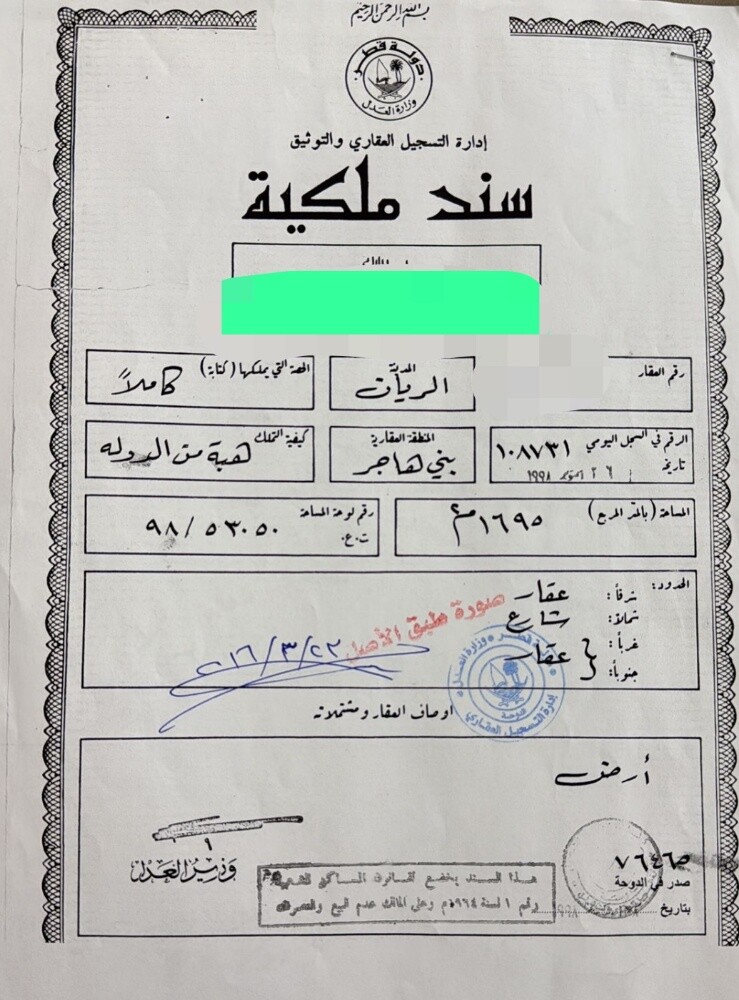 بسم الله الرحمن الرحيم
دولة قطر
وزارة العدل
إدارة التسجيل العقاري والتوثيق
سند ملكية
رقم العقار
المدينة
الريان
الحصة التي يملكها (كتابة)
كاملاً
الرقم في السجل اليومي ١٠٨٧٣١
تاريخ ٢٦ أكتوبر ١٩٩٨
المنطقة العقارية
بني هاجر
كيفية التملك
هبة من الدوله
المساحة (بالمتر المربع) ١٦٩٥ م٢
رقم لوحة المساحة ٥٣٠٥٠ / ٩٨
ت.ع.
الحدود: شرقاً: عقار
شمالاً: شارع
غرباً: عقار
جنوباً:
صورة طبق الأصل
٢٠١٦/٣/٢٢
دولة قطر وزارة العدل
الدوحة
إدارة التسجيل العقاري
اوصاف العقار ومشتملاته
أرض
صدر في الدوحة
بتاريخ
وزير العدل
هذا السند يخضع لقانون المساكن الشعبية
رقم ١ لسنة ١٩٦٤م وعلى المالك عدم البيع والتصرف